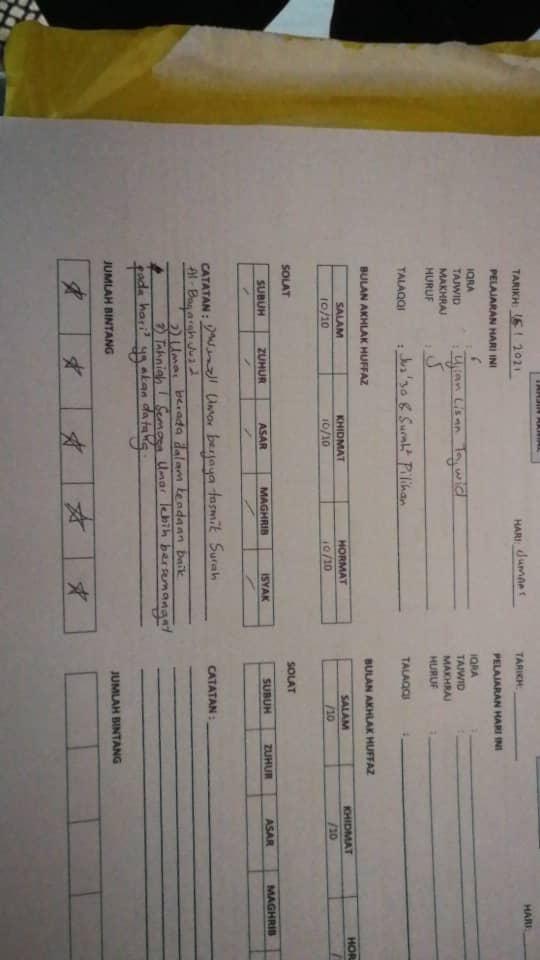 TARIKH: 2021
HARI: Jumaat
PELAJARAN HARI INI
IQRA : 6
TAJWID : Ujian Lisan Tajwid
MAKHRAJ
HURUF :
TALAQQI : Jus' 30 & Surah Pilihan
BULAN AKHLAK HUFFAZ
SALAM KHIDMAT HORMAT
10/10 10/10 10/10
SOLAT
SUBUH ZUHUR ASAR MAGHRIB ISYAK
/ / / / /
CATATAN : Umar berjaya tasmik Surah
Al-Baqarah Jus 2
2) Umar berada dalam keadaan baik
3) Tahniah! Semoga Umar lebih bersemangat
pada hari² yg akan datang.
JUMLAH BINTANG
TARIKH:
HARI:
PELAJARAN HARI INI
IQRA
TAJWID :
MAKHRAJ
HURUF :
TALAQQI :
BULAN AKHLAK HUFFAZ
SALAM KHIDMAT HOR
/10 /10 /
SOLAT
SUBUH ZUHUR ASAR MAGHRIB
CATATAN :
JUMLAH BINTANG